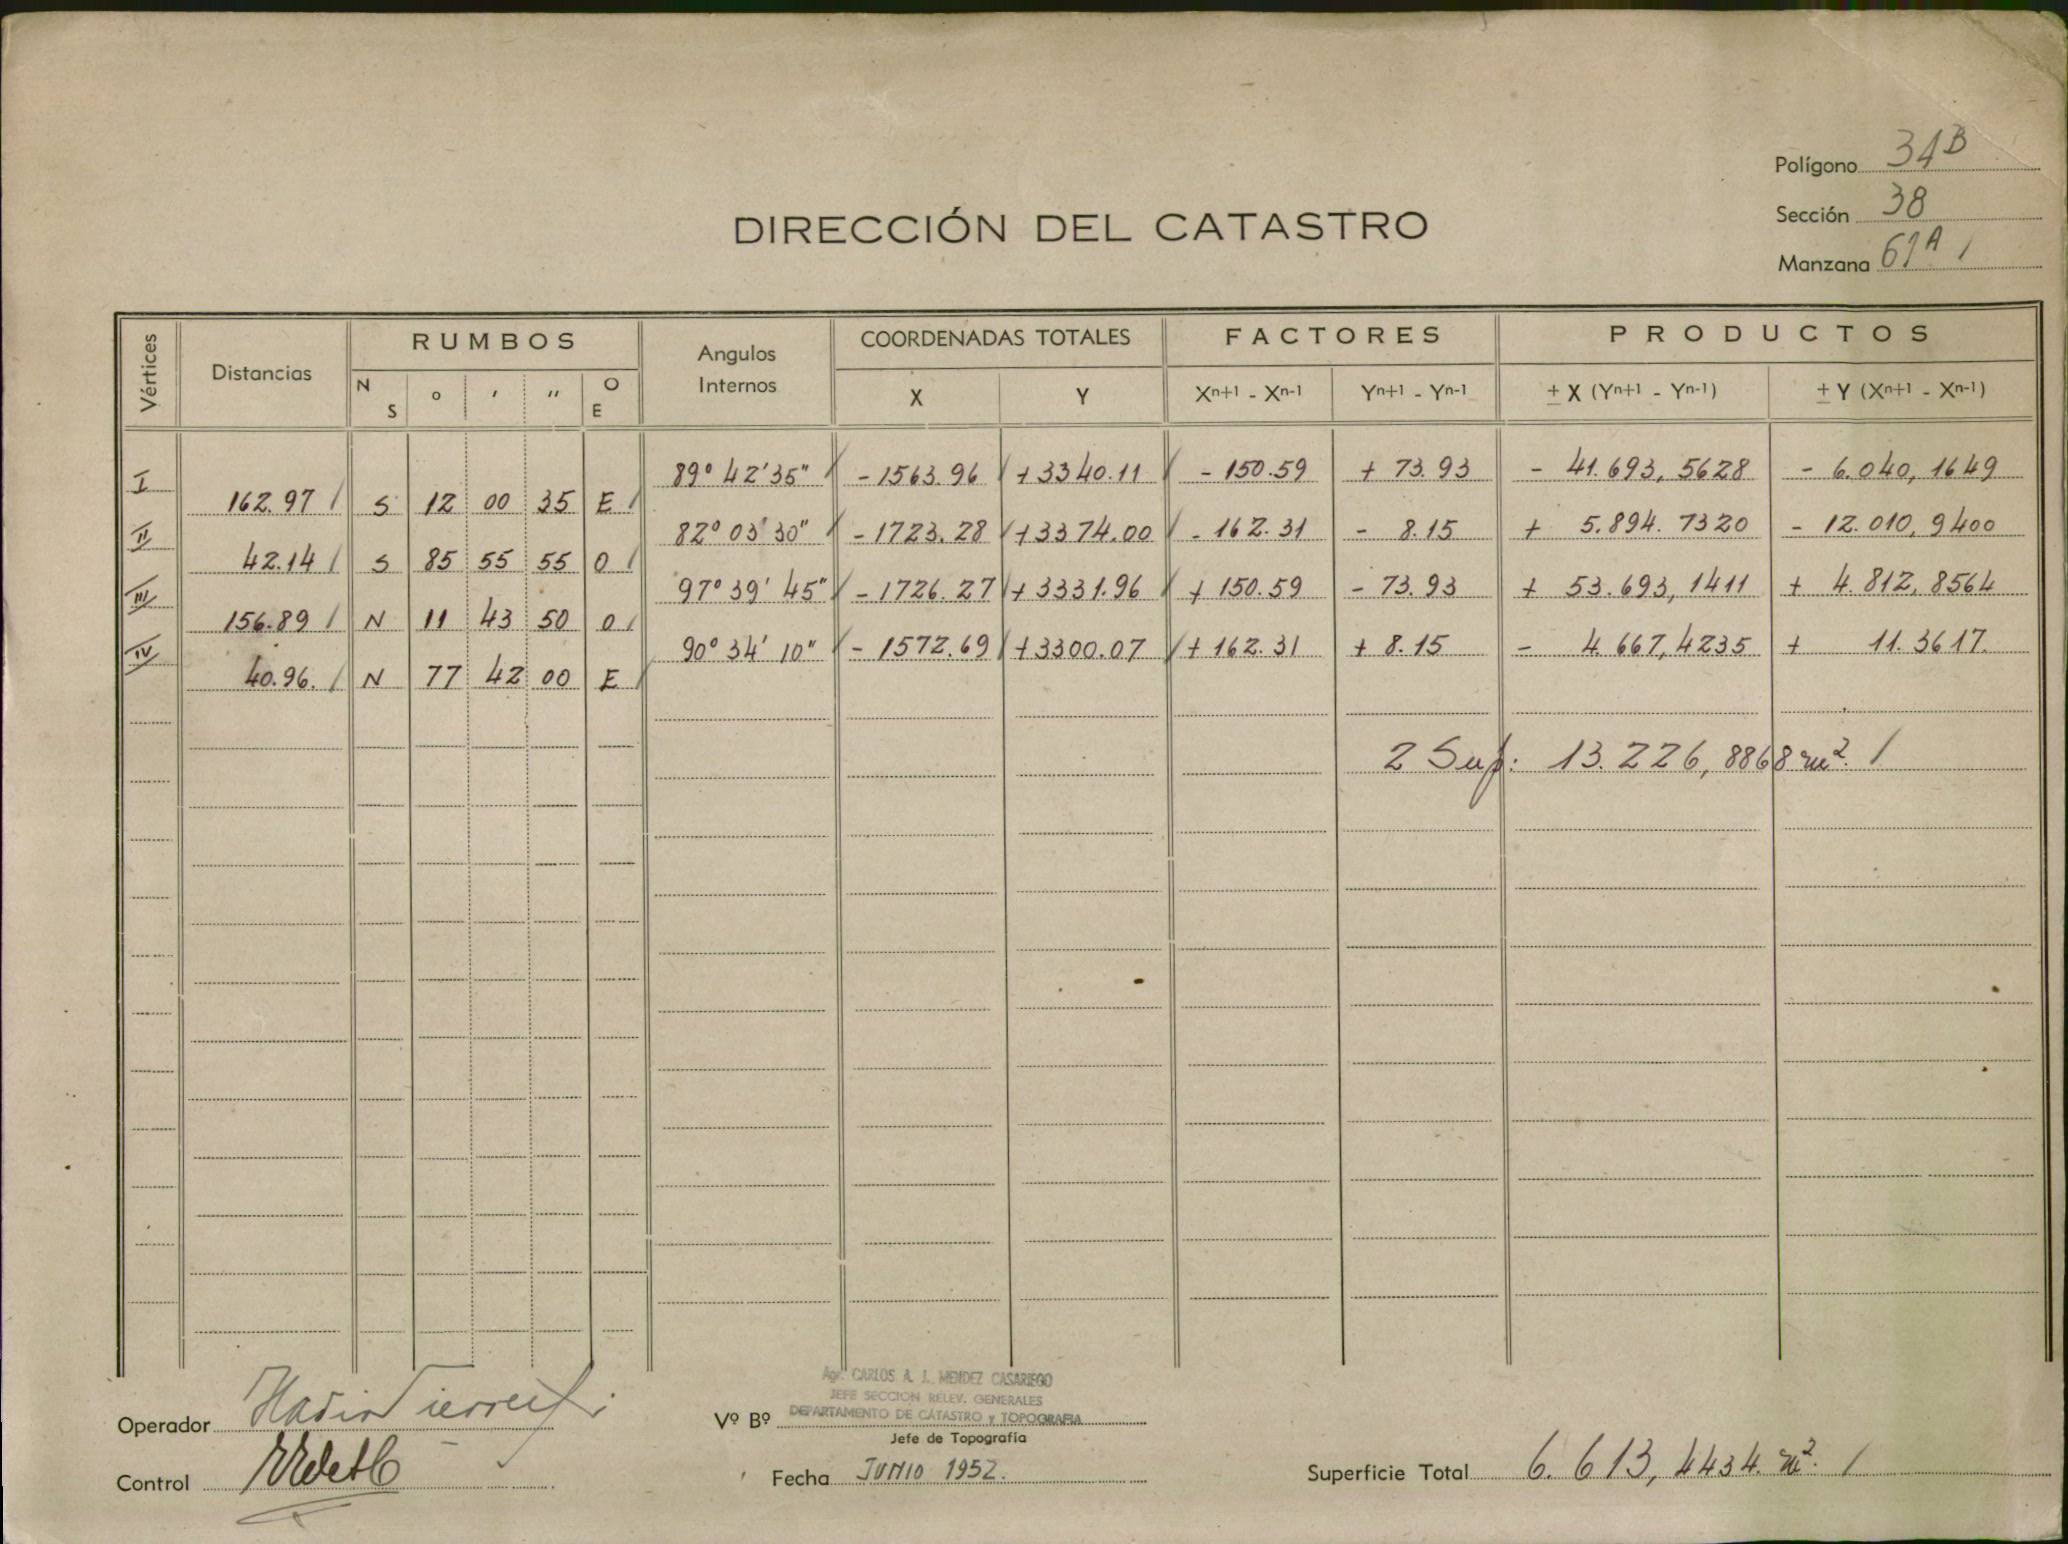 Polígono 34B
Sección 38
Manzana 61A /
DIRECCIÓN DEL CATASTRO
Vértices Distancias RUMBOS Angulos Internos COORDENADAS TOTALES FACTORES PRODUCTOS
N S ° ' " O E X Y Xn+1 - Xn-1 Yn+1 - Yn-1 ± X (Yn+1 - Yn-1) ± Y (Xn+1 - Xn-1)
I 89° 42' 35" / - 1563.96 / + 3340.11 / - 150.59 + 73.93 - 41.693,5628 - 6.040,1649
162.97 / S 12 00 35 E /
II 82° 03' 30" / - 1723.28 / + 3374.00 / - 162.31 - 8.15 + 5.894.7320 - 12.010,9400
42.14 / S 85 55 55 O /
III 97° 39' 45" / - 1726.27 / + 3331.96 / + 150.59 - 73.93 + 53.693,1411 + 4.812,8564
156.89 / N 11 43 50 O /
IV 90° 34' 10" - 1572.69 / + 3300.07 / + 162.31 + 8.15 - 4.667,4235 + 11.3617.
40.96. / N 77 42 00 E /
2 Sup: 13.226,8868 m². /
Operador
Control
Agr. CARLOS A. J. MENDEZ CASARIEGO
JEFE SECCION RELEV. GENERALES
Vº Bº DEPARTAMENTO DE CATASTRO y TOPOGRAFIA
Jefe de Topografía
Fecha JUNIO 1952.
Superficie Total 6.613,4434. m². /